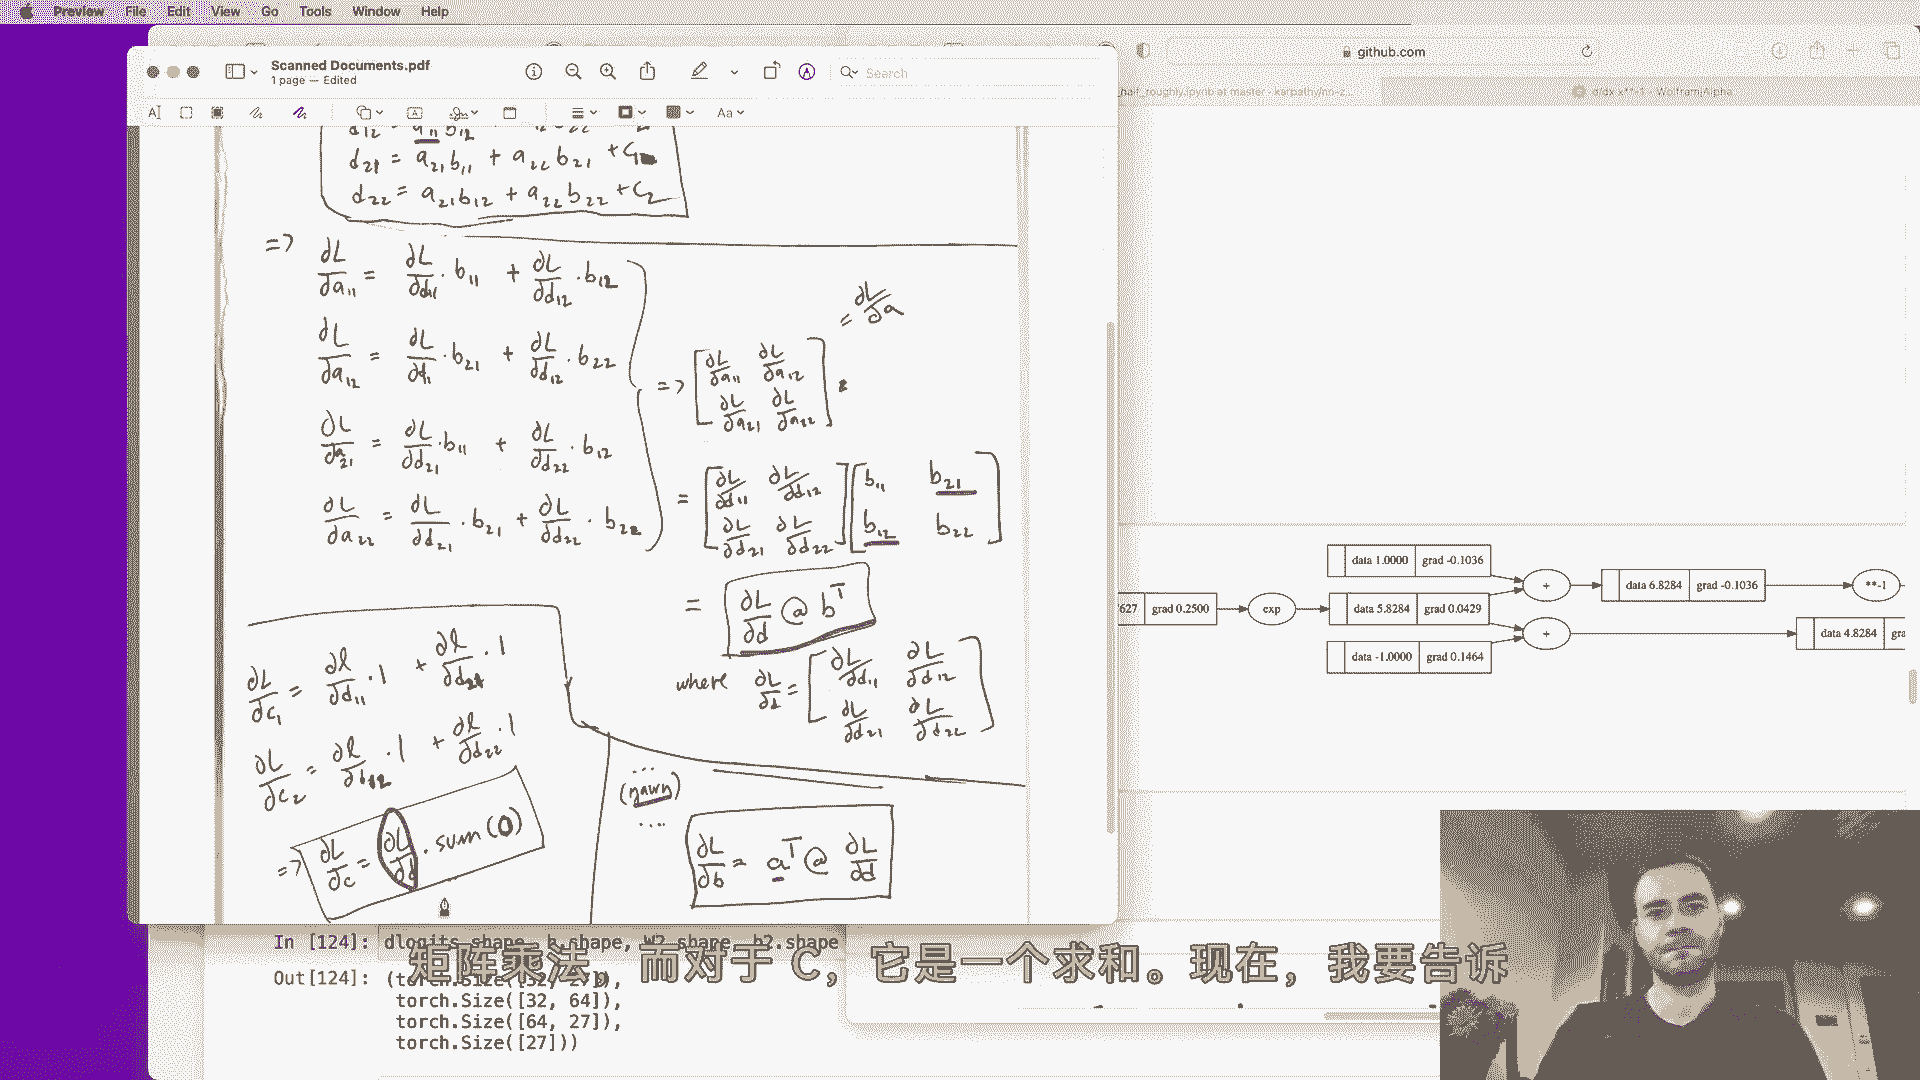 Preview File Edit View Go Tools Window Help
Scanned Documents.pdf
1 page — Edited
Search
github.com
_half_roughly.ipynb at master · karpathy/nn-z...
d/dx x**-1 - Wolfram|Alpha
d₁₂ = a₁₁ b₁₂
d₂₁ = a₂₁ b₁₁ + a₂₂ b₂₁ + C₁
d₂₂ = a₂₁ b₁₂ + a₂₂ b₂₂ + C₂
=> ∂L/∂a₁₁ = ∂L/∂d₁₁ · b₁₁ + ∂L/∂d₁₂ · b₁₂
∂L/∂a₁₂ = ∂L/∂d₁₁ · b₂₁ + ∂L/∂d₁₂ · b₂₂
∂L/∂a₂₁ = ∂L/∂d₂₁ · b₁₁ + ∂L/∂d₂₂ · b₁₂
∂L/∂a₂₂ = ∂L/∂d₂₁ · b₂₁ + ∂L/∂d₂₂ · b₂₂
= ∂L/∂a
=> [ ∂L/∂a₁₁ ∂L/∂a₁₂
∂L/∂a₂₁ ∂L/∂a₂₂ ]
= [ ∂L/∂d₁₁ ∂L/∂d₁₂ ] [ b₁₁ b₂₁
∂L/∂d₂₁ ∂L/∂d₂₂ ] b₁₂ b₂₂ ]
= ∂L/∂d @ bᵀ
where ∂L/∂d = [ ∂L/∂d₁₁ ∂L/∂d₁₂
∂L/∂d₂₁ ∂L/∂d₂₂ ]
∂L/∂c₁ = ∂l/∂d₁₁ · 1 + ∂l/∂d₂₁ · 1
∂L/∂c₂ = ∂l/∂d₁₂ · 1 + ∂l/∂d₂₂ · 1
=> ∂L/∂c = ∂L/∂d . sum(0)
...
(yawn)
....
∂L/∂b = aᵀ @ ∂L/∂d
627 grad 0.2500
exp
data 1.0000 grad -0.1036
data 5.8284 grad 0.0429
data -1.0000 grad 0.1464
+
+
data 6.8284 grad -0.1036
**-1
data 4.8284 gra
In [124]: dlogits.shape, h.shape, W2.shape, b2.shape
Out[124]: (torch.Size([32, 27]),
torch.Size([32, 64]),
torch.Size([64, 27]),
torch.Size([27]))
矩阵乘法，而对于 C，它是一个求和。现在，我要告诉